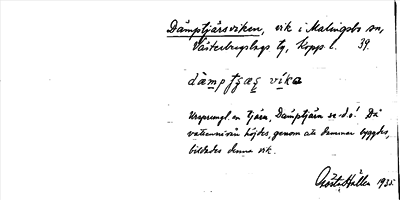 Dämptjärsviken, vik i Malingsbo sn,
Västerbergslags tg, Kopp. l. 39.
dämp tʂæʂ vika
Ursprungl. en tjärn, Dämptjärn se d.o! Då
vattennivån höjdes, genom att dammar byggdes,
bildades denna vik.
Gösta Hallén 1935